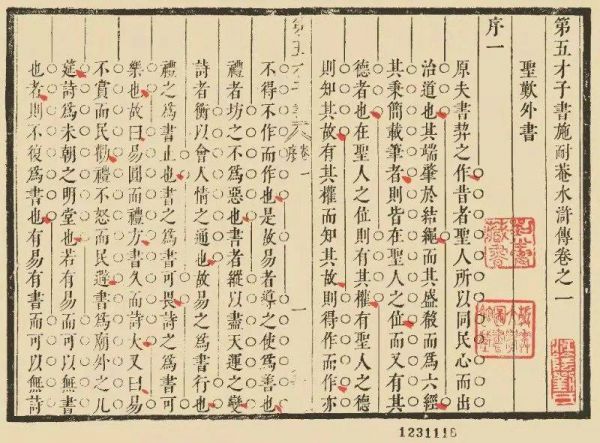 第五才子書施耐菴水滸傳卷之一
聖歎外書
序一
原夫書契之作昔者聖人所以同民心而出
治道也其端肇於結繩而其盛殽而爲六經
其秉簡載筆者則皆在聖人之位而又有其
德者也在聖人之位則有其權有聖人之德
則知其故有其權而知其故則得作而作亦
不得不作而作也是故易者導之使爲善也
禮者坊之不爲惡也書者縱以盡天運之變
詩者衡以會人情之通也故易之爲書行也
禮之爲書止也書之爲書可畏詩之爲書可
樂也故曰易圓而禮方書久而詩大又曰易
不賞而民勸禮不怒而民避書爲廟外之几
筵詩爲未朝之明堂也若有易而可以無書
也者則不復爲書也有易有書而可以無詩
1231116